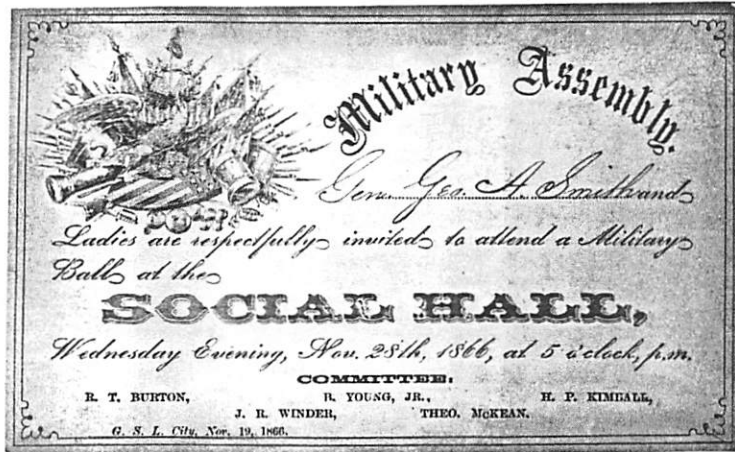 Military Assembly.
Gen. Geo. A. Smith and
Ladies are respectfully invited to attend a Military
Ball at the
SOCIAL HALL,
Wednesday Evening, Nov. 28th, 1866, at 5 o'clock, p.m.
COMMITTEE:
R. T. BURTON, B. YOUNG, JR., H. P. KIMBALL,
J. R. WINDER, THEO. McKEAN.
G. S. L. City, Nov. 19, 1866.